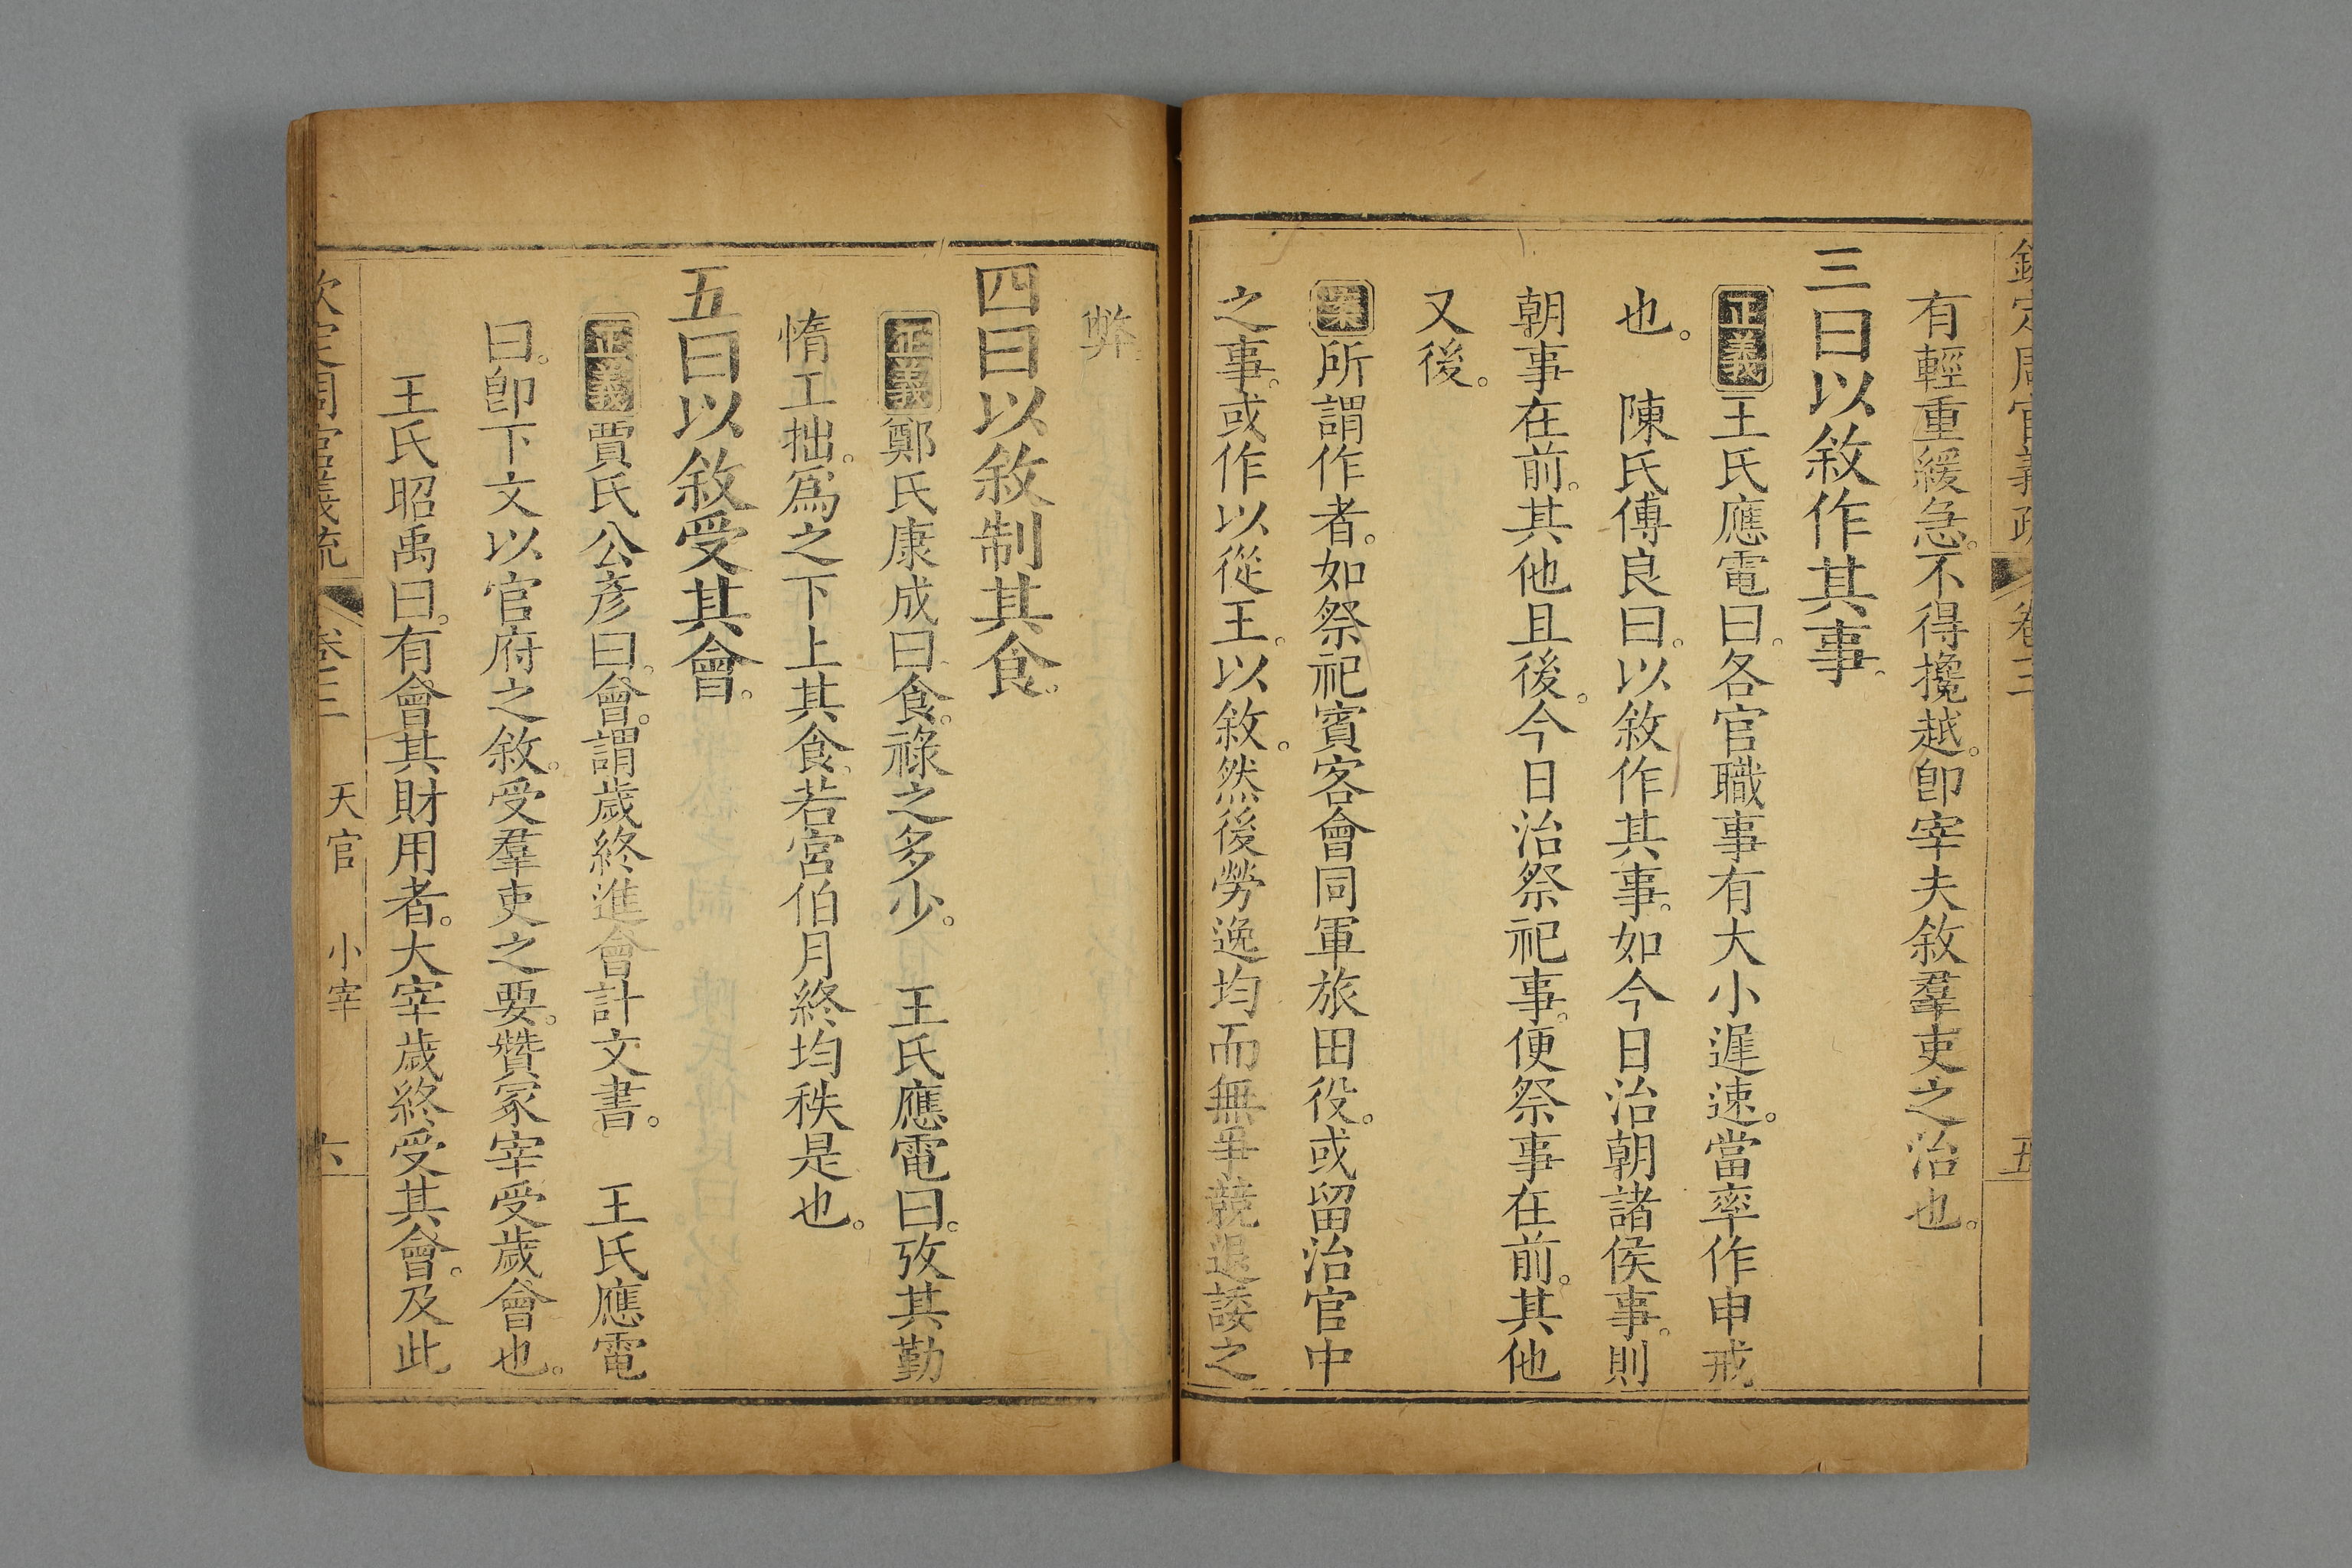 欽定周官義疏 卷三 五
有輕重緩急。不得攙越。卽宰夫敘羣吏之治也。
三曰以敘作其事。
正義王氏應電曰。各官職事有大小遲速。當率作申戒
也。 陳氏傅良曰。以敘作其事。如今日治朝諸侯事。則
朝事在前。其他且後。今日治祭祀事。便祭事在前。其他
又後。
案所謂作者。如祭祀賓客會同軍旅田役。或留治官中
之事。或作以從王。以敘。然後勞逸均而無爭競退諉之
弊
四曰以敘制其食。
正義鄭氏康成曰食。祿之多少。 王氏應電曰。攷其勤
惰工拙。爲之下上其食。若宮伯月終均秩是也。
五曰以敘受其會。
正義賈氏公彥曰。會。謂歲終進會計文書。 王氏應電
曰。卽下文以官府之敘。受羣吏之要。贊冢宰受歲會也。
王氏昭禹曰。有會其財用者。大宰歲終受其會。及此
欽定周官義疏 卷三 天官 小宰 六